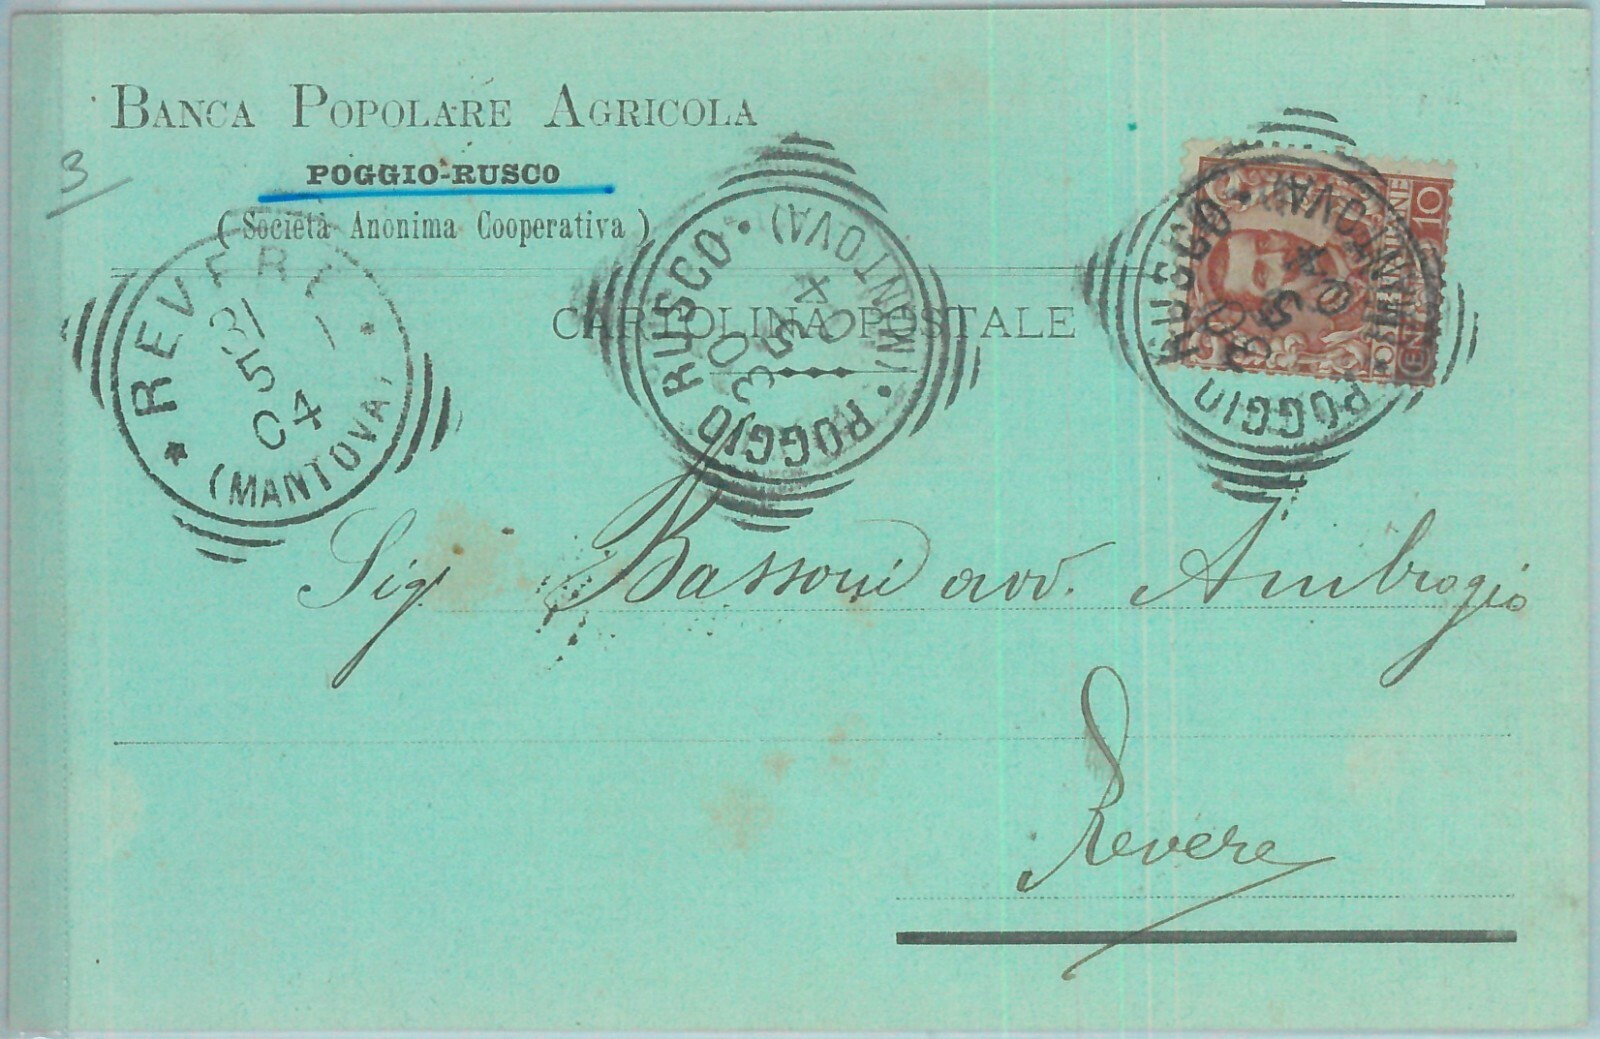 BANCA POPOLARE AGRICOLA
POGGIO-RUSCO
3
(Società Anonima Cooperativa)
CARTOLINA POSTALE
* REVERE *
31
5
04
(MANTOVA)
POGGIO RUSCO • (MANTOVA) •
30
5
POGGIO RUSCO • (MANTOVA) •
30
5
04
10
Sigr Bassoni avv. Ambrogio
Revere